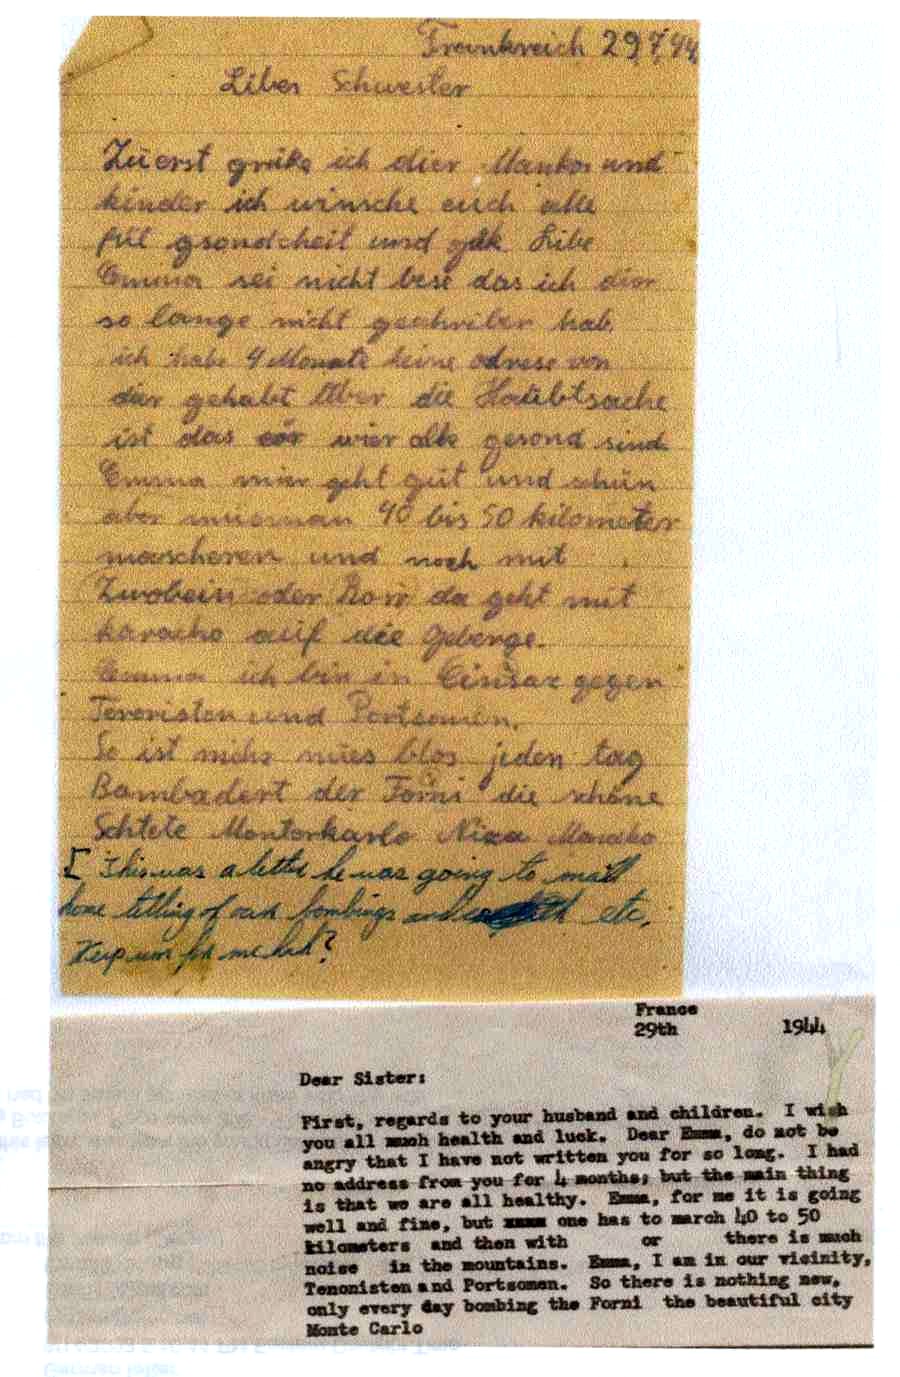 Frankreich 29.7.44
Liber Schwester
Zuerst grüße ich dier Mankos und
kinder ich winsche euch alle
fill gsondcheit und glik Libe
Emma sei nicht bese das ich dier
so lange nicht geschriber hab.
ich habe 4 Monate keine adrese von
dier gehabt Aber die Haubtsache
ist das wier alle gesond sind
Emma mier geht gut und schün
aber muesman 40 bis 50 kilometer
mascheren und noch mit
oder da geht mit
karacho auf die Geberge.
Emma ich bin in Einsaz gegen
Teroristen und Portsomen.
So ist nichs nues blos jeden tag
Bambadert der Forni die schöne
Schtete Montorkarlo Niza Monako
[ This was a letter he was going to mail
home telling of our bombings and etc.
Keep um for me heh?
France
29th 1944
Dear Sister:
First, regards to your husband and children. I wish
you all much health and luck. Dear Emma, do not be
angry that I have not written you for so long. I had
no address from you for 4 months; but the main thing
is that we are all healthy. Emma, for me it is going
well and fine, but one has to march 40 to 50
kilometers and then with or there is much
noise in the mountains. Emma, I am in our vicinity,
Tenonisten and Portsomen. So there is nothing new,
only every day bombing the Forni the beautiful city
Monte Carlo